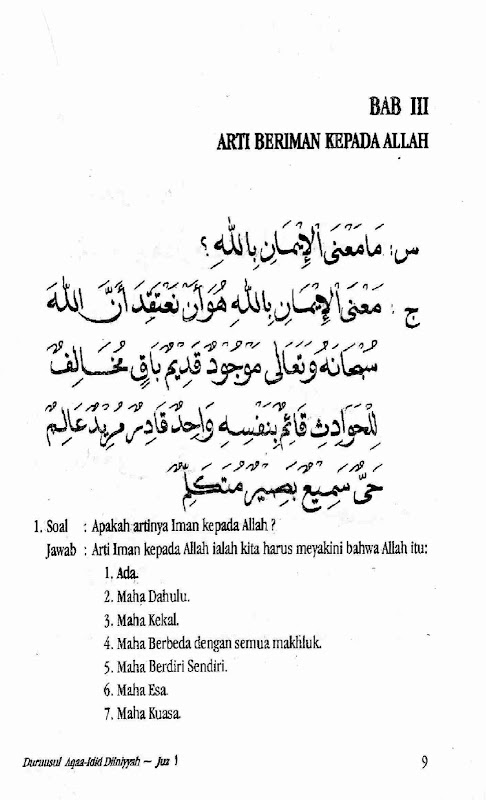 BAB III
ARTI BERIMAN KEPADA ALLAH
س: مَا مَعْنَى الْإِيْمَانِ بِاللهِ ؟
ج : مَعْنَى الْإِيْمَانِ بِاللهِ هُوَ أَنْ نَعْتَقِدَ أَنَّ اللهَ
سُبْحَانَهُ وَتَعَالَى مَوْجُودٌ قَدِيْمٌ بَاقٍ مُخَالِفٌ
لِلْحَوَادِثِ قَائِمٌ بِنَفْسِهِ وَاحِدٌ قَادِرٌ مُرِيْدٌ عَالِمٌ
حَيٌّ سَمِيْعٌ بَصِيْرٌ مُتَكَلِّمٌ
1. Soal : Apakah artinya Iman kepada Allah ?
Jawab : Arti Iman kepada Allah ialah kita harus meyakini bahwa Allah itu:
1. Ada.
2. Maha Dahulu.
3. Maha Kekal.
4. Maha Berbeda dengan semua makhluk.
5. Maha Berdiri Sendiri.
6. Maha Esa
7. Maha Kuasa
Duruusul Aqaa-idid Diiniyyah — Juz 1 9